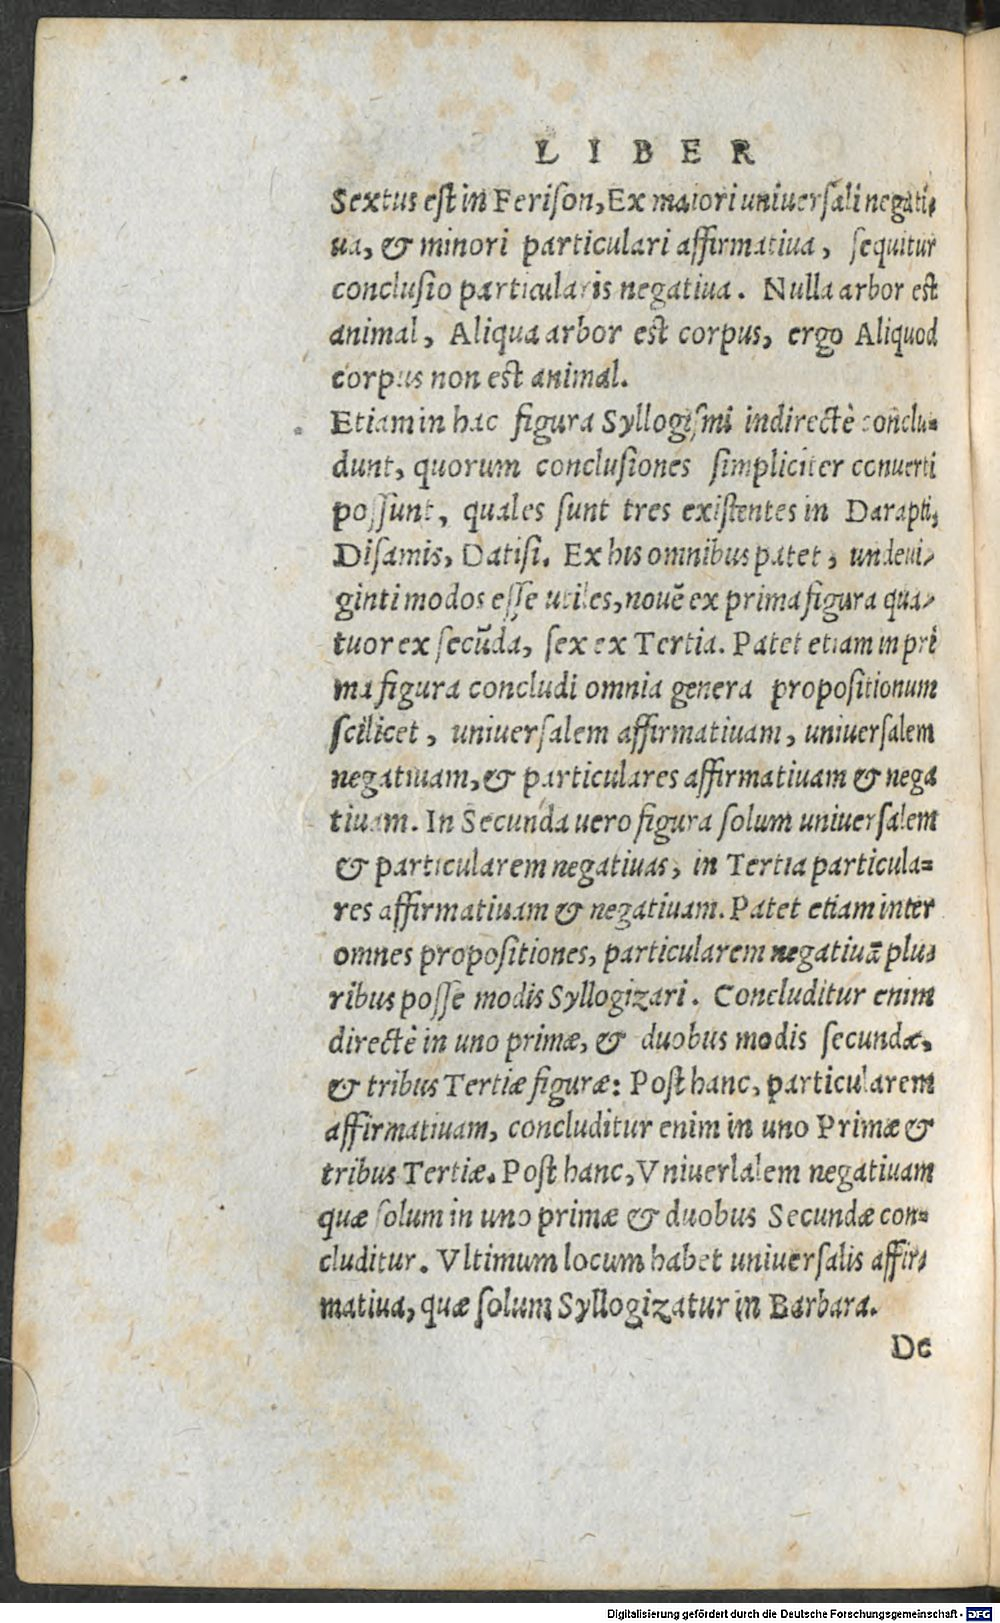 LIBER
Sextus est in Ferison, Ex maiori uniuersali negati-
ua, & minori particulari affirmatiua, sequitur
conclusio particularis negatiua. Nulla arbor est
animal, Aliqua arbor est corpus, ergo Aliquod
corpus non est animal.
Etiam in hac figura Syllogismi indirectè conclu-
dunt, quorum conclusiones simpliciter conuerti
possunt, quales sunt tres existentes in Darapti,
Disamis, Datisi. Ex his omnibus patet, undeui-
ginti modos esse utiles, nouē ex prima figura qua-
tuor ex secūda, sex ex Tertia. Patet etiam in pri
ma figura concludi omnia genera propositionum
scilicet, uniuersalem affirmatiuam, uniuersalem
negatiuam, & particulares affirmatiuam & nega
tiuam. In Secunda uero figura solum uniuersalem
& particularem negatiuas, in Tertia particula-
res affirmatiuam & negatiuam. Patet etiam inter
omnes propositiones, particularem negatiuā plu-
ribus posse modis Syllogizari. Concluditur enim
directè in uno primæ, & duobus modis secundæ,
& tribus Tertiæ figuræ: Post hanc, particularem
affirmatiuam, concluditur enim in uno Primæ &
tribus Tertiæ. Post hanc, Vniuerlalem negatiuam
quæ solum in uno primæ & duobus Secundæ con-
cluditur. Vltimum locum habet uniuersalis affir-
matiua, quæ solum Syllogizatur in Barbara.
De
Digitalisierung gefördert durch die Deutsche Forschungsgemeinschaft - DFG